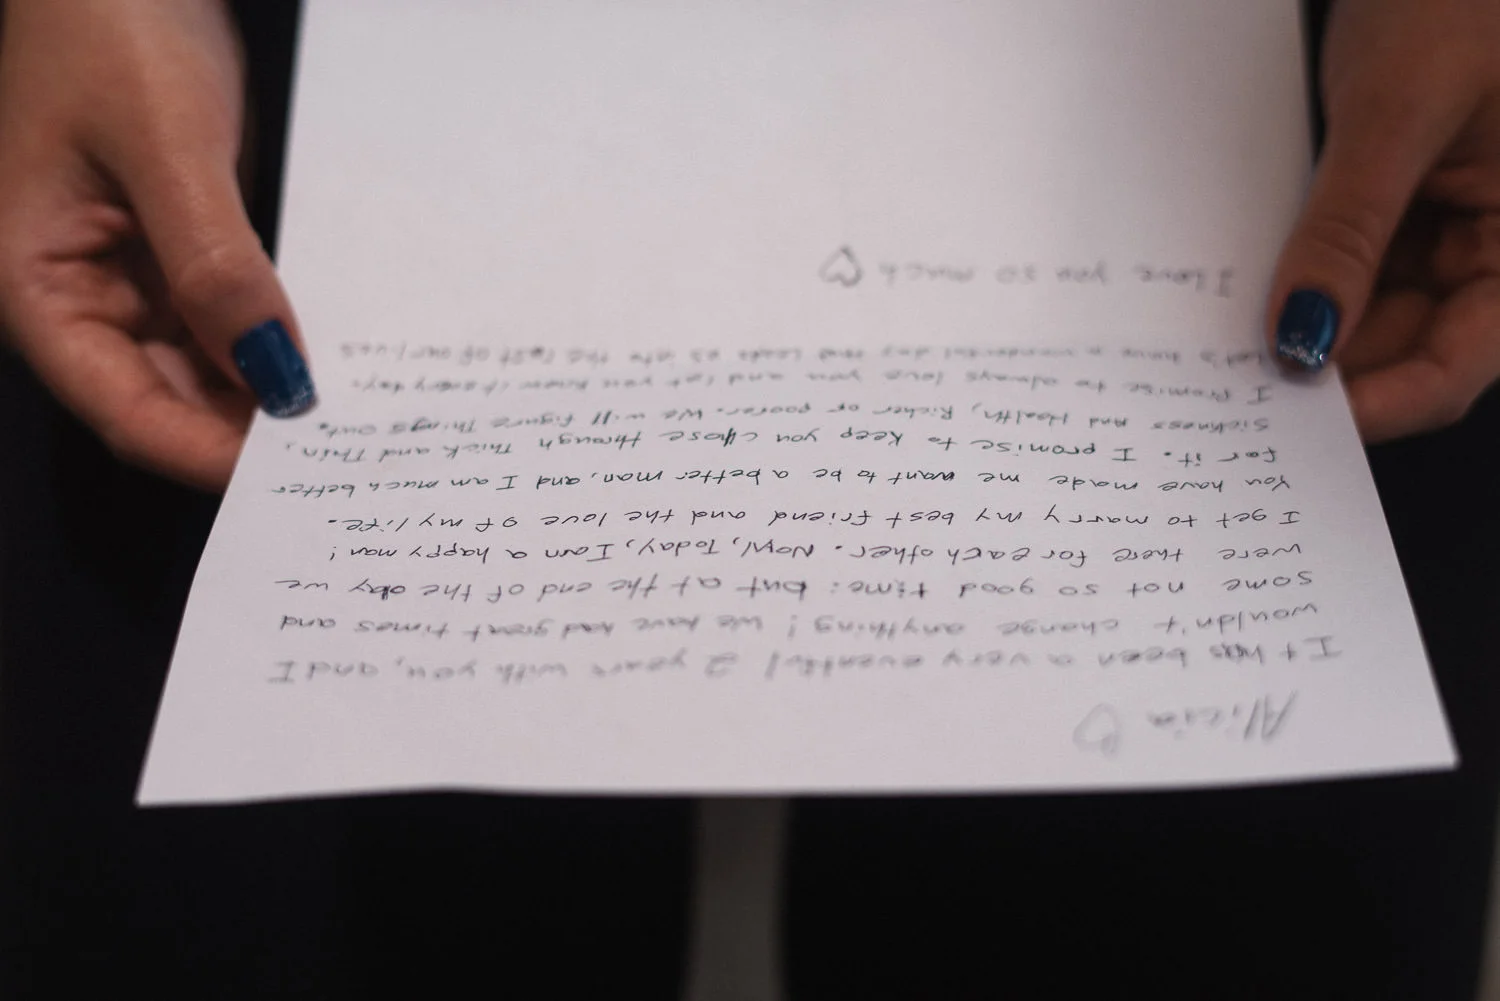 Alicia ♡
It has been a very eventful 2 years with you, and I
wouldn't change anything! We have had great times and
some not so good time: but at the end of the day we
were there for each other. Now, Today, I am a happy man!
I get to marry my best friend and the love of my life.
You have made me want to be a better man, and I am much better
for it. I promise to keep you close through Thick and Thin,
Sickness And Health, Richer or poorer. We will figure things out.
I promise to always love you and let you know it every day.
Let's have a wonderful day that leads us into the rest of our lives
I love you so much ♡